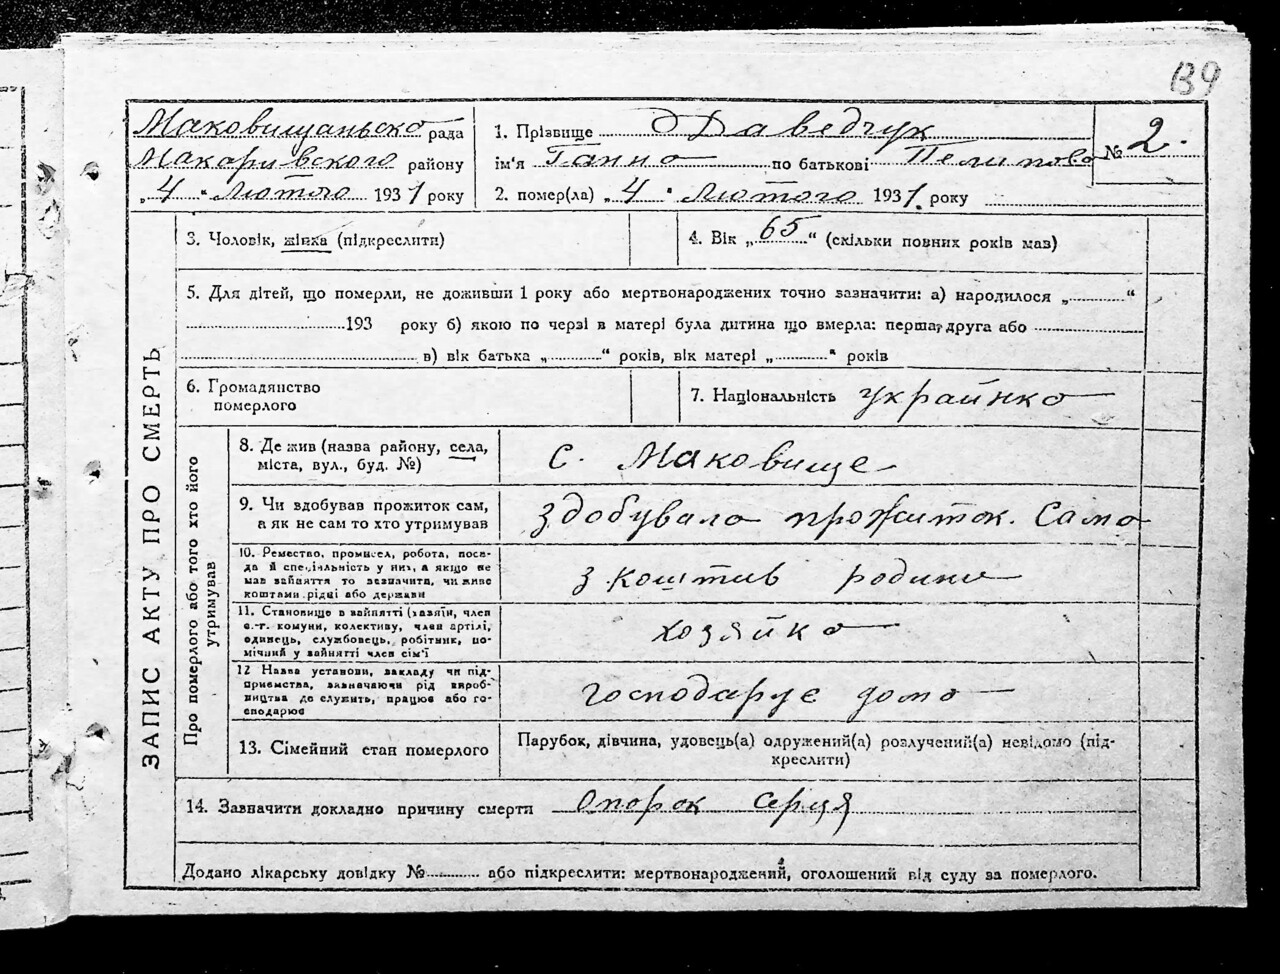 139
Маковищансько рада
Макарівского району
„4“ Лютого 1931 року
1. Прізвище Даведчук
ім'я Ганна по батькові Пелипова
2. помер(ла) „4“ Лютого 1931. року
№ 2.
ЗАПИС АКТУ ПРО СМЕРТЬ
3. Чоловік, жінка (підкреслити)
4. Вік „65“ (скільки повних років мав)
5. Для дітей, що померли, не доживши 1 року або мертвонароджених точно зазначити: а) народилося „............“
193 року б) якою по черзі в матері була дитина що вмерла: перша, друга або
в) вік батька „............“ років, вік матері „............“ років
6. Громадянство
померлого
7. Національність українка
Про померлого або того хто його
утримував
8. Де жив (назва району, села,
міста, вул., буд. №)
с. Маковище
9. Чи вдобував прожиток сам,
а як не сам то хто утримував
здобувала прожиток. Сама
10. Ремество, промисел, робота, поса-
да й спеціяльність у них, а якщо не
мав вайняття то зазначити, чи живе
коштами рідні або держави
з коштив родини
11. Становище в вайнятті (хазяїн, член
с.-г. комуни, колективу, член артілі,
одинець, службовець, робітник, по-
мічний у вайнятті член сім'ї
хозяйка
12 Назва установи, вакладу чи під-
приємства, вазначаючи рід вироб-
ництва де служить, працює або го-
сподарює
господарує дома
13. Сімейний стан померлого
Парубок, дівчина, удовець(а) одружений(а) розлучений(а) невідомо (під-
креслити)
14. Зазначити докладно причину смерти Опорок серця
Додано лікарську довідку №............ або підкреслити: мертвонароджений, оголошений від суду за померлого.